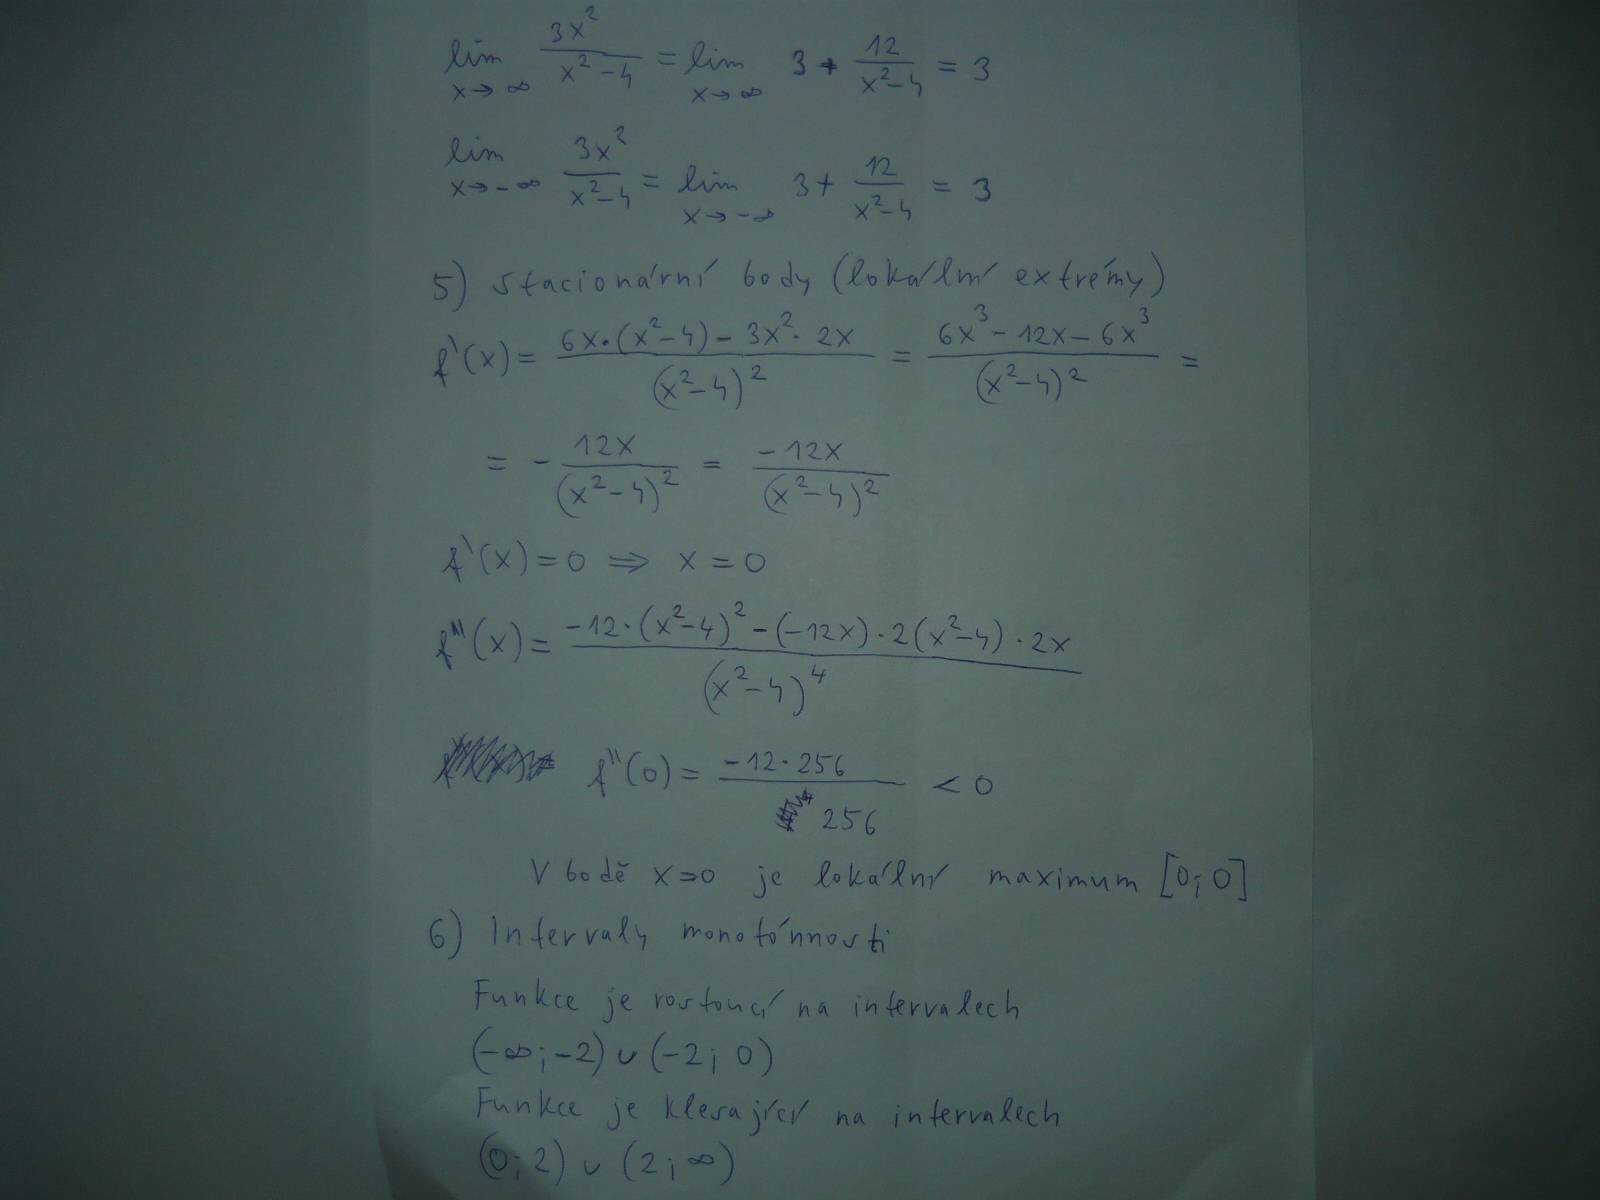 lim x→∞ 3x²/(x²-4) = lim x→∞ 3 + 12/(x²-4) = 3
lim x→-∞ 3x²/(x²-4) = lim x→-∞ 3 + 12/(x²-4) = 3
5) Stacionární body (lokální extrémy)
f'(x) = (6x·(x²-4) - 3x²·2x)/(x²-4)² = (6x³ - 12x - 6x³)/(x²-4)² =
= - 12x/(x²-4)² = -12x/(x²-4)²
f'(x) = 0 ⇒ x = 0
f''(x) = (-12·(x²-4)² - (-12x)·2(x²-4)·2x)/(x²-4)⁴
f''(0) = (-12·256)/256 < 0
V bodě x=0 je lokální maximum [0;0]
6) Intervaly monotónnosti
Funkce je rostoucí na intervalech
(-∞;-2) ∪ (-2;0)
Funkce je klesající na intervalech
(0;2) ∪ (2;∞)